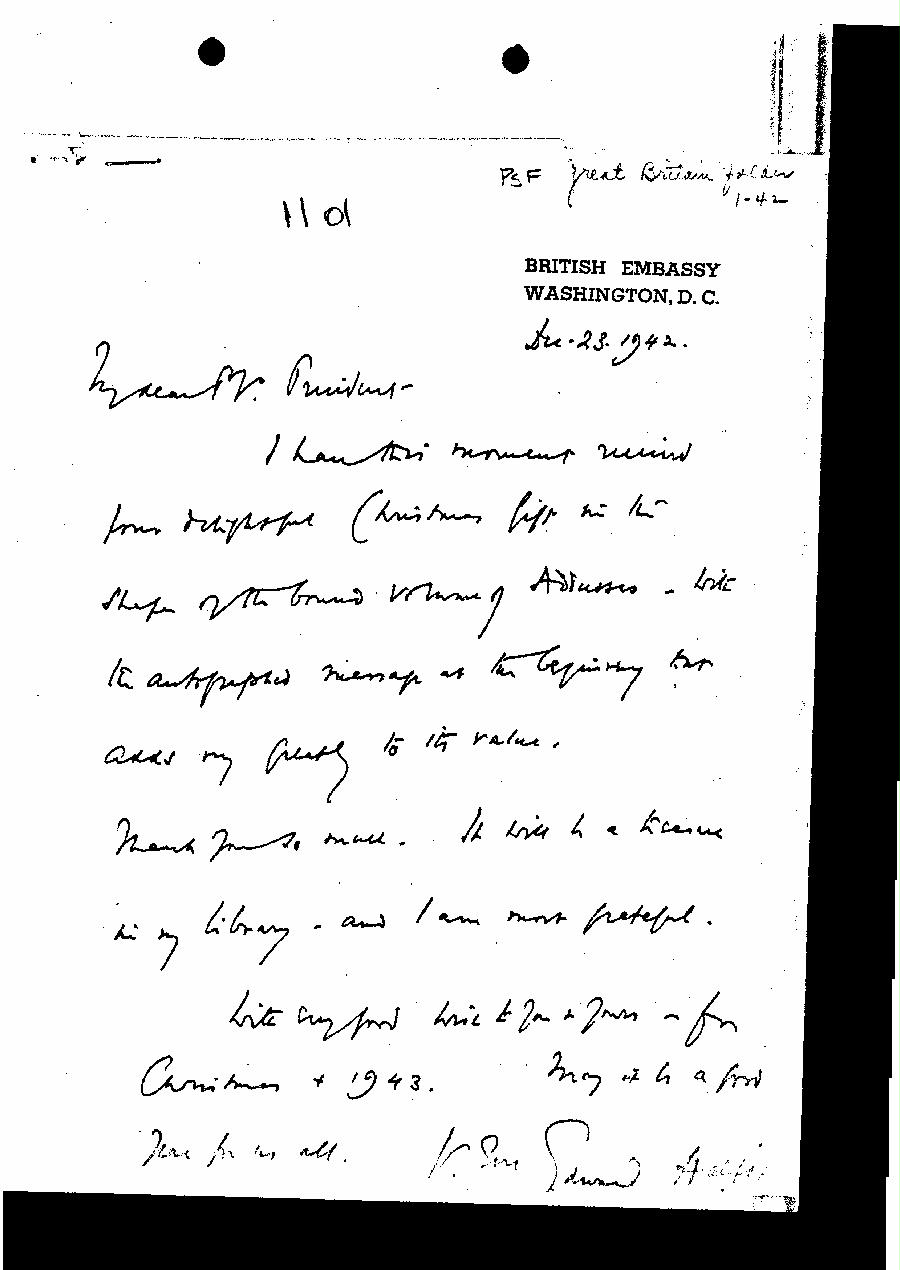 PSF Great Britain folder
1-42
11 d
BRITISH EMBASSY
WASHINGTON, D. C.
Dec. 23. 1942.
My dear Mr. President
I have this moment received
your delightful Christmas gift in the
shape of the bound volume of Addresses - with
the autographed message at the beginning that
adds very greatly to its value.
Thank you so much. It will be a treasure
in my library - and I am most grateful.
With every good wish to you & yours - for
Christmas + 1943. May it be a good
year for us all. Edward Halifax